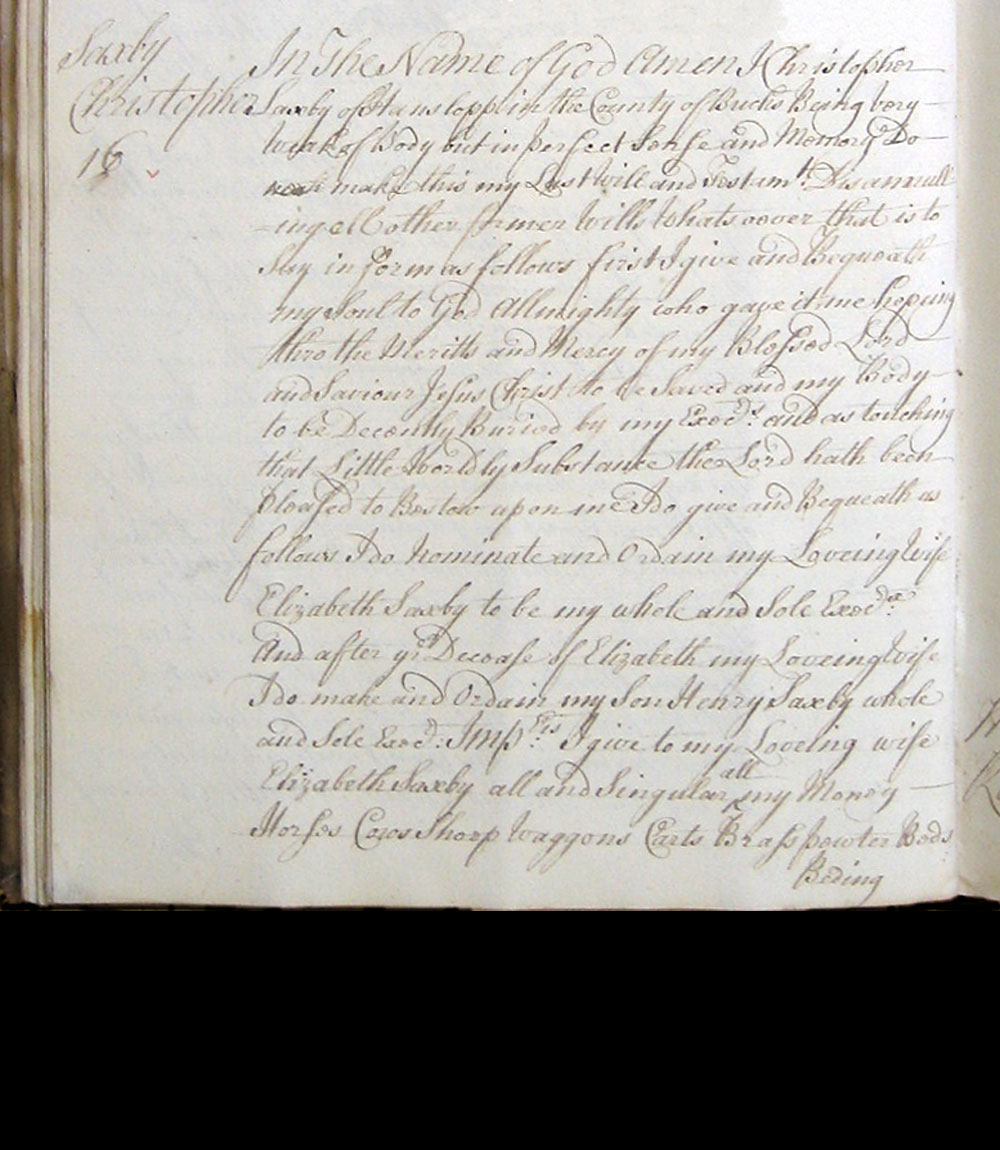 Saxby
Christopher
16
In The Name of God Amen I Christopher
Saxby of Hanslopp in the County of Bucks Being very
weak of Body but in perfect Sense and Memory Do
make this my Last Will and Testamt. Disannull
-ing all other former Wills Whatsoever that is to
Say in form as follows first I give and Bequeath
my Soul to God Allmighty who gave it me hopeing
thro the Meritts and Mercy of my Blessed Lord
and Saviour Jesus Christ to be Saved and my Body
to be Decently Buried by my Execrs. and as touching
that Little Worldly Substance the Lord hath been
pleased to Bestow upon me I do give and Bequeath as
follows I do Nominate and Ordain my Loveing Wife
Elizabeth Saxby to be my whole and Sole Execrx.
And after ye Decease of Elizabeth my Loveing Wife
I do make and Ordain my Son Henry Saxby whole
and Sole Execr: Imprs. I give to my Loveing wife
Elizabeth Saxby all and Singular all my Money
Horses Cows Sheep Waggons Carts Brass pewter Beds
Beding